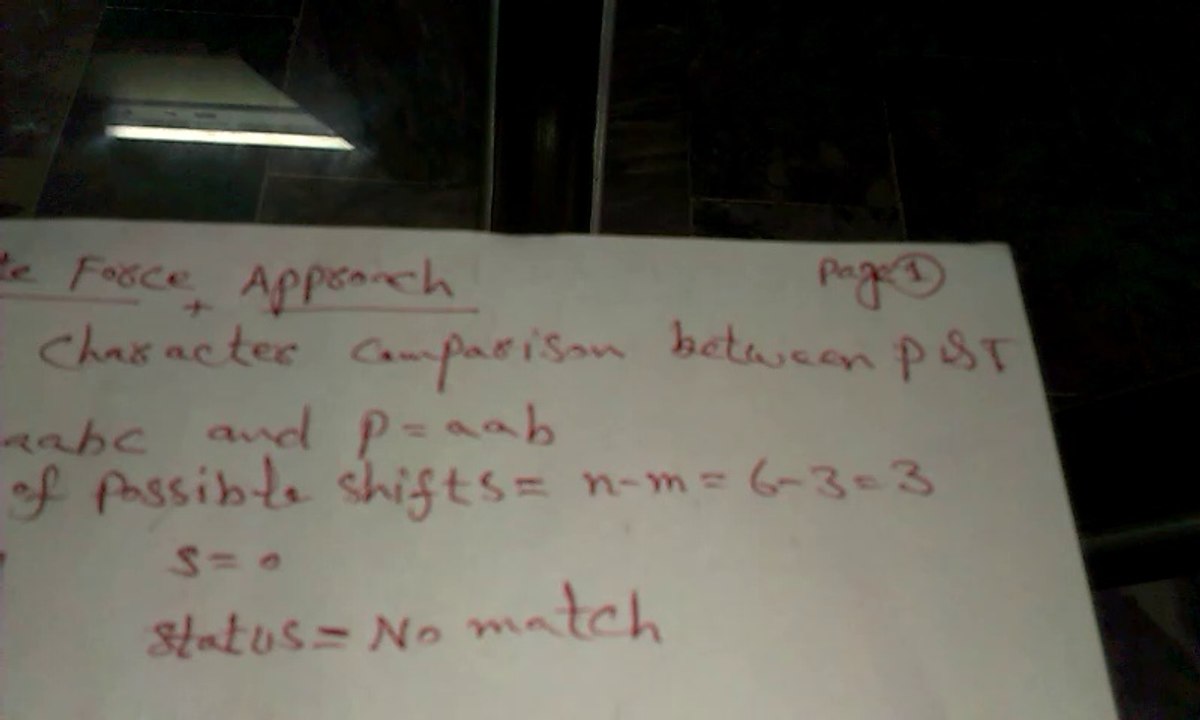 te Force Approach
Page 1
Character Comparison between P & T
aabc and P = aab
of possible shifts = n-m = 6-3 = 3
S = 0
Status = No match